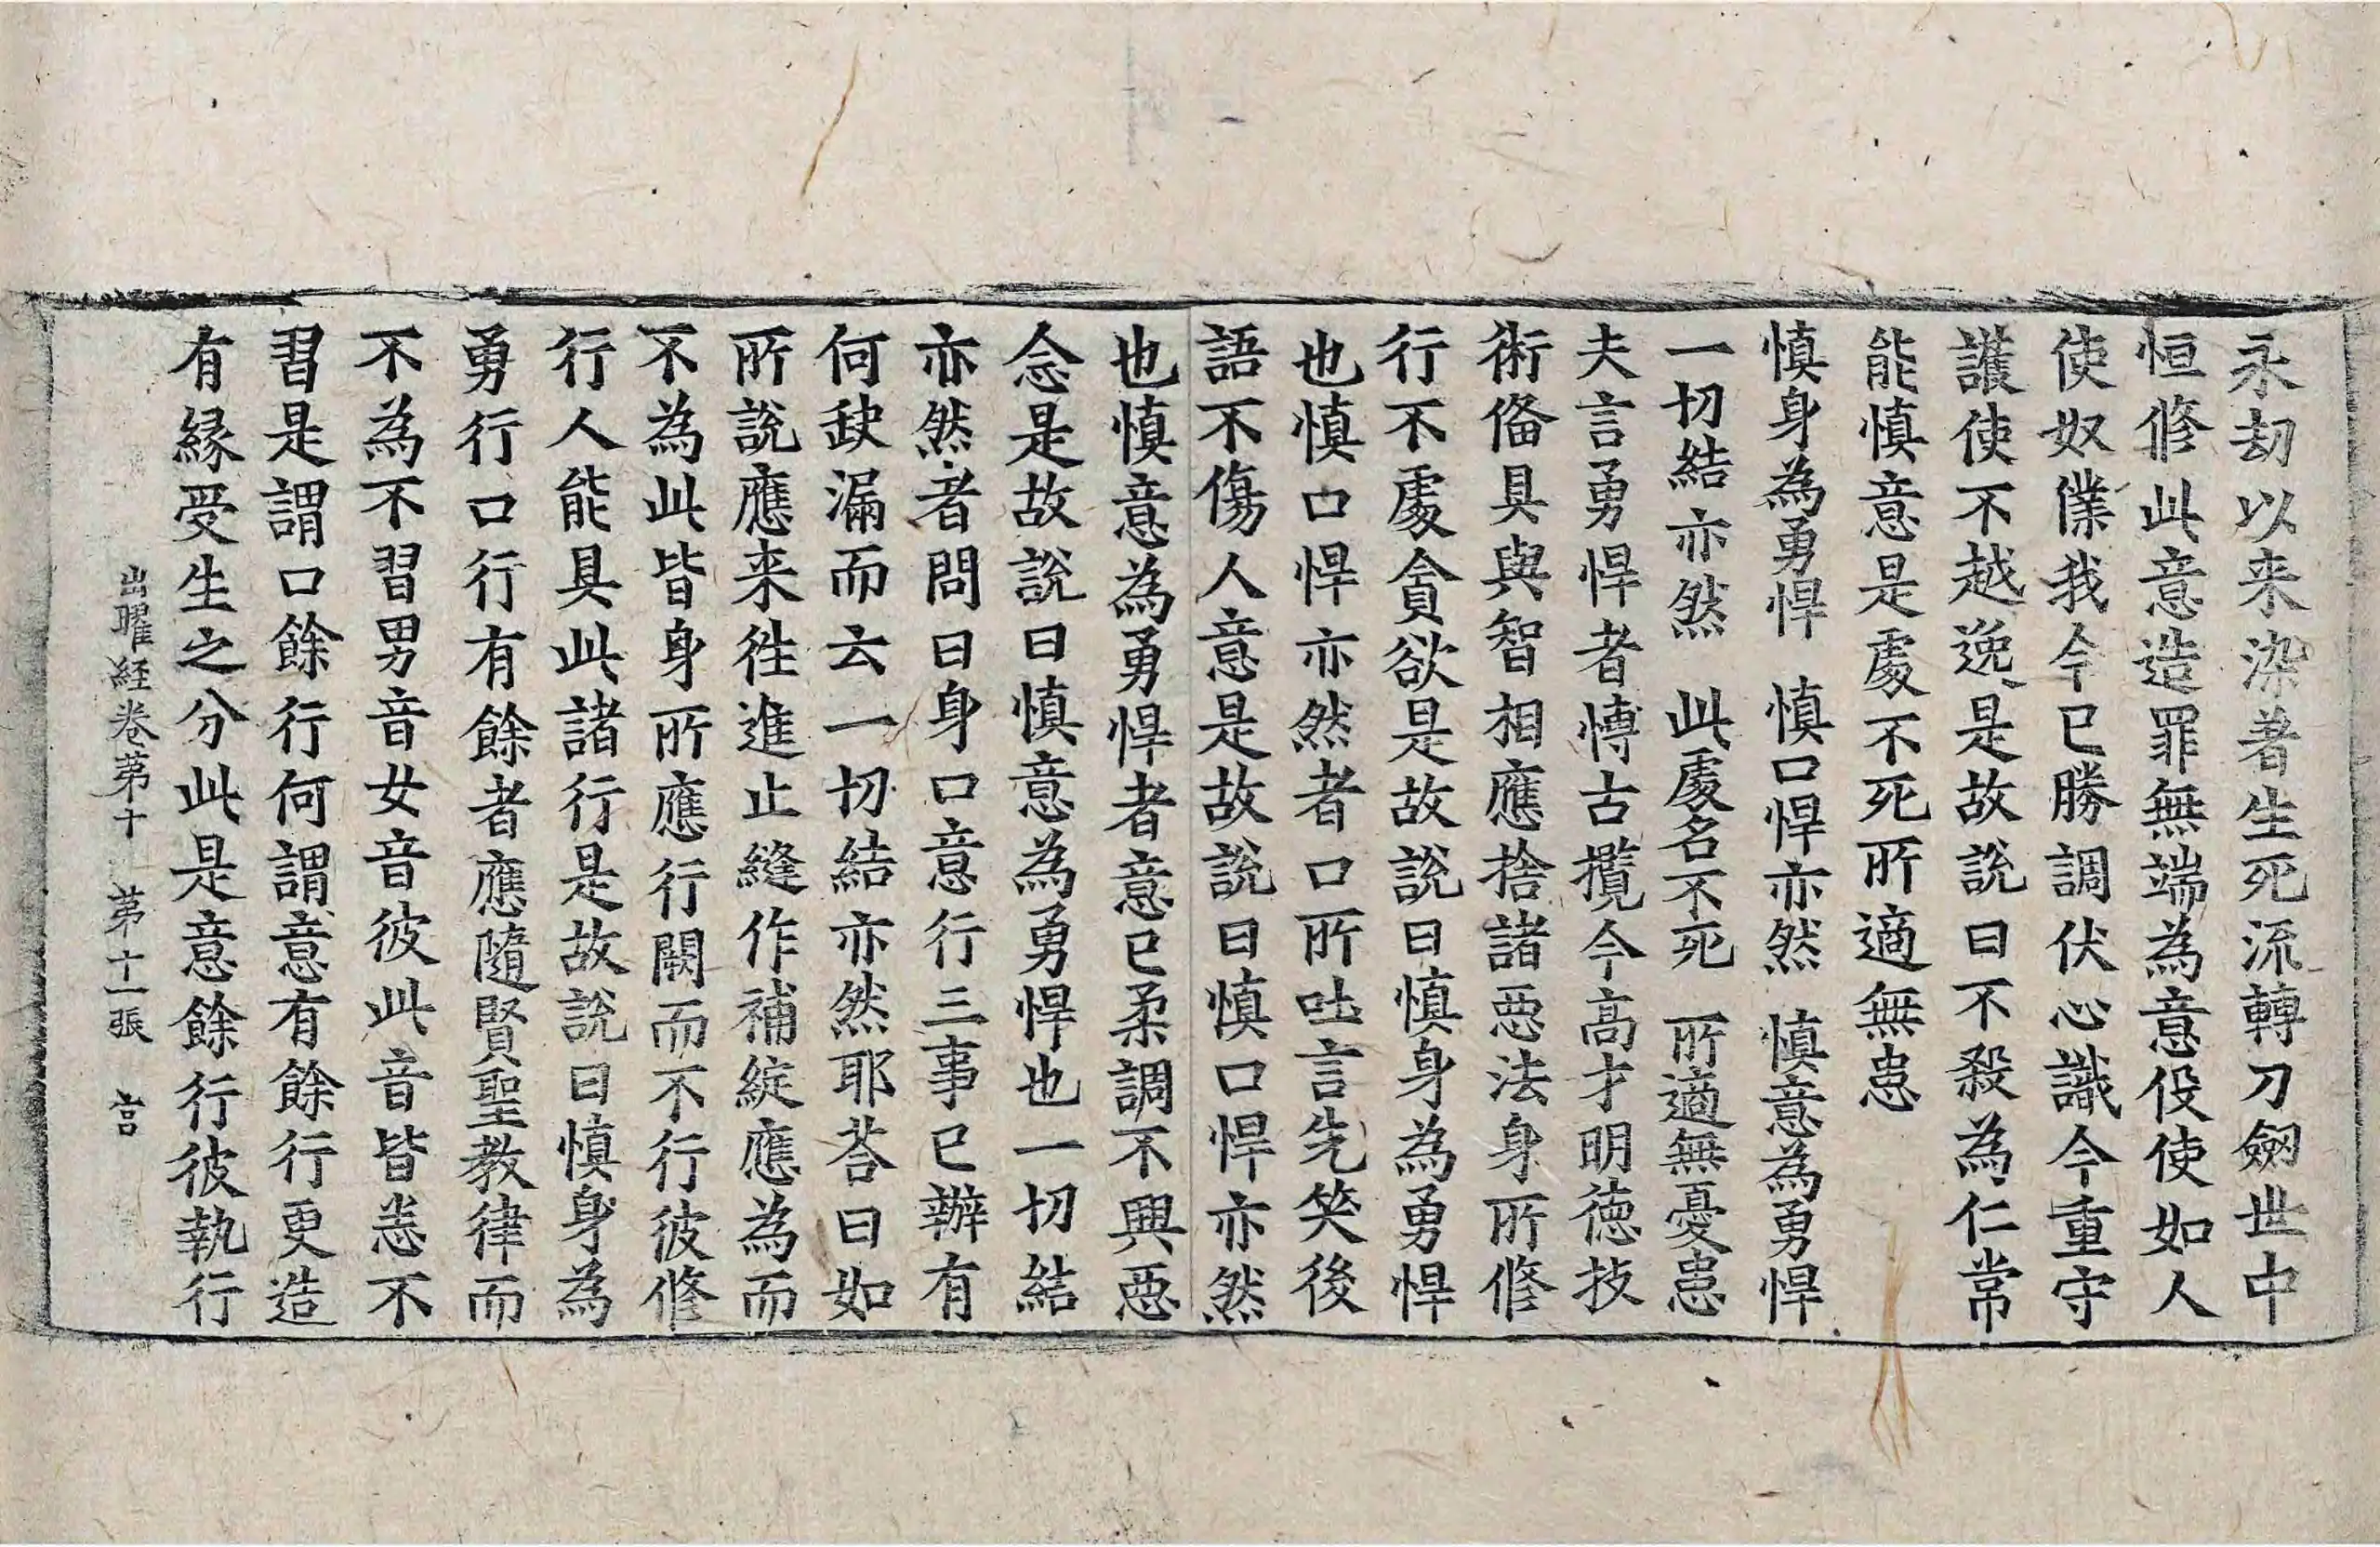 永劫以来染著生死流轉刀劒世中
恒修此意造罪無端為意伇使如人
使奴僕我今已勝調伏心識今重守
護使不越逸是故說曰不殺為仁常
能慎意是處不死所適無患
慎身為勇悍　慎口悍亦然　慎意為勇悍
一切結亦然　此處名不死　所適無憂患
夫言勇悍者愽古攬今高才明徳技
術俻具與智相應捨諸惡法身所修
行不處貪欲是故說曰慎身為勇悍
也慎口悍亦然者口所吐言先笑後
語不傷人意是故說曰慎口悍亦然
也慎意為勇悍者意已柔調不興惡
念是故說曰慎意為勇悍也一切結
亦然者問曰身口意行三事已辦有
何缺漏而云一切結亦然耶荅曰如
所說應来往進止縫作補綻應為而
不為此皆身所應行闕而不行彼修
行人能具此諸行是故說曰慎身為
勇行口行有餘者應隨賢聖教律而
不為不習男音女音彼此音皆悉不
習是謂口餘行何謂意有餘行更造
有縁受生之分此是意餘行彼執行
出曜経卷苐十　苐十一張　言